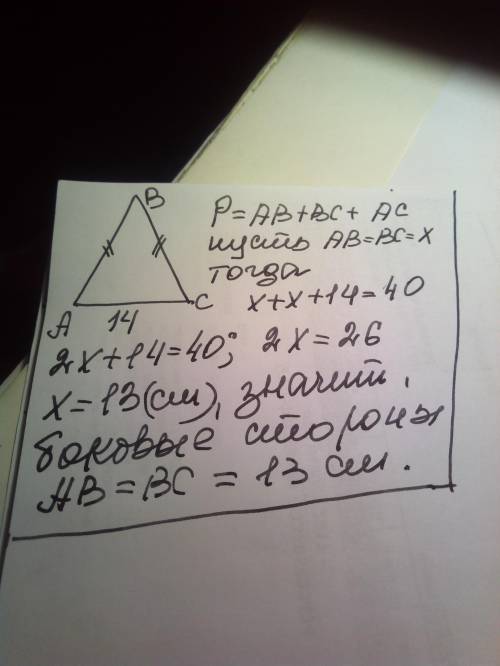 B
P=AB+BC+ AC
пусть AB=BC=x
тогда
x+x+14=40
A 14 C
2x+14=40; 2x=26
x=13(см), значит,
боковые стороны
AB=BC = 13 см.